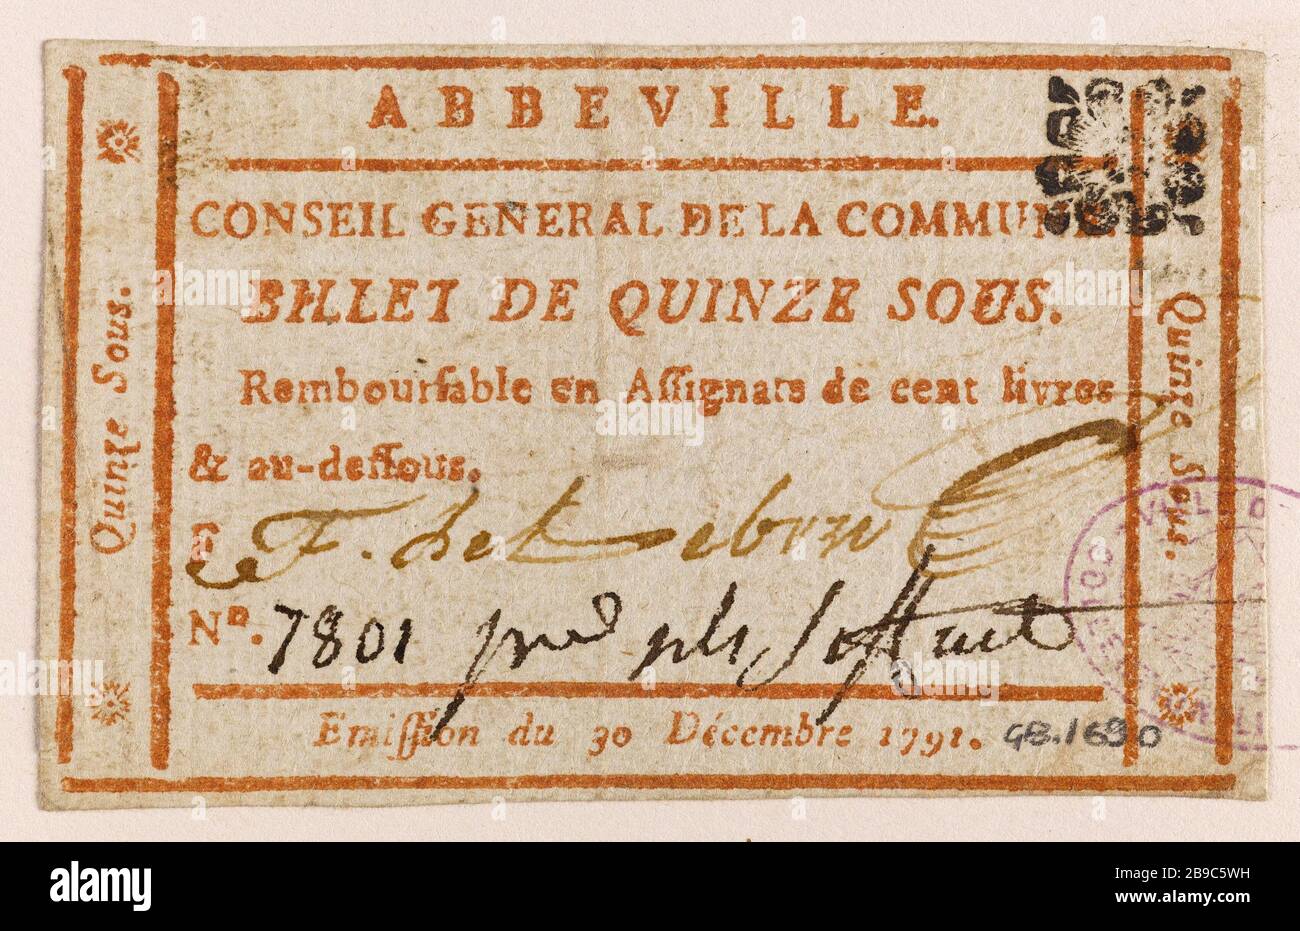 ABBEVILLE.
CONSEIL GENERAL DE LA COMMUNE
BILLET DE QUINZE SOUS.
Rembourſable en Aſſignats de cent livres
& au-deſſous.
F. del Lebrun
Nº. 7801
Emiſſion du 30 Décembre 1791.
GB.1690
Quinze Sous.
Quinze Sous.
alamy
Image ID: 2B9C5WH
www.alamy.com